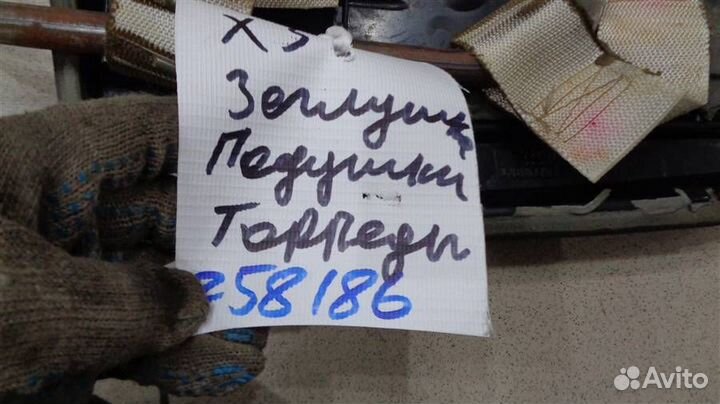 X5
Заглушка
Подушки
Торпеды
258186
Avito